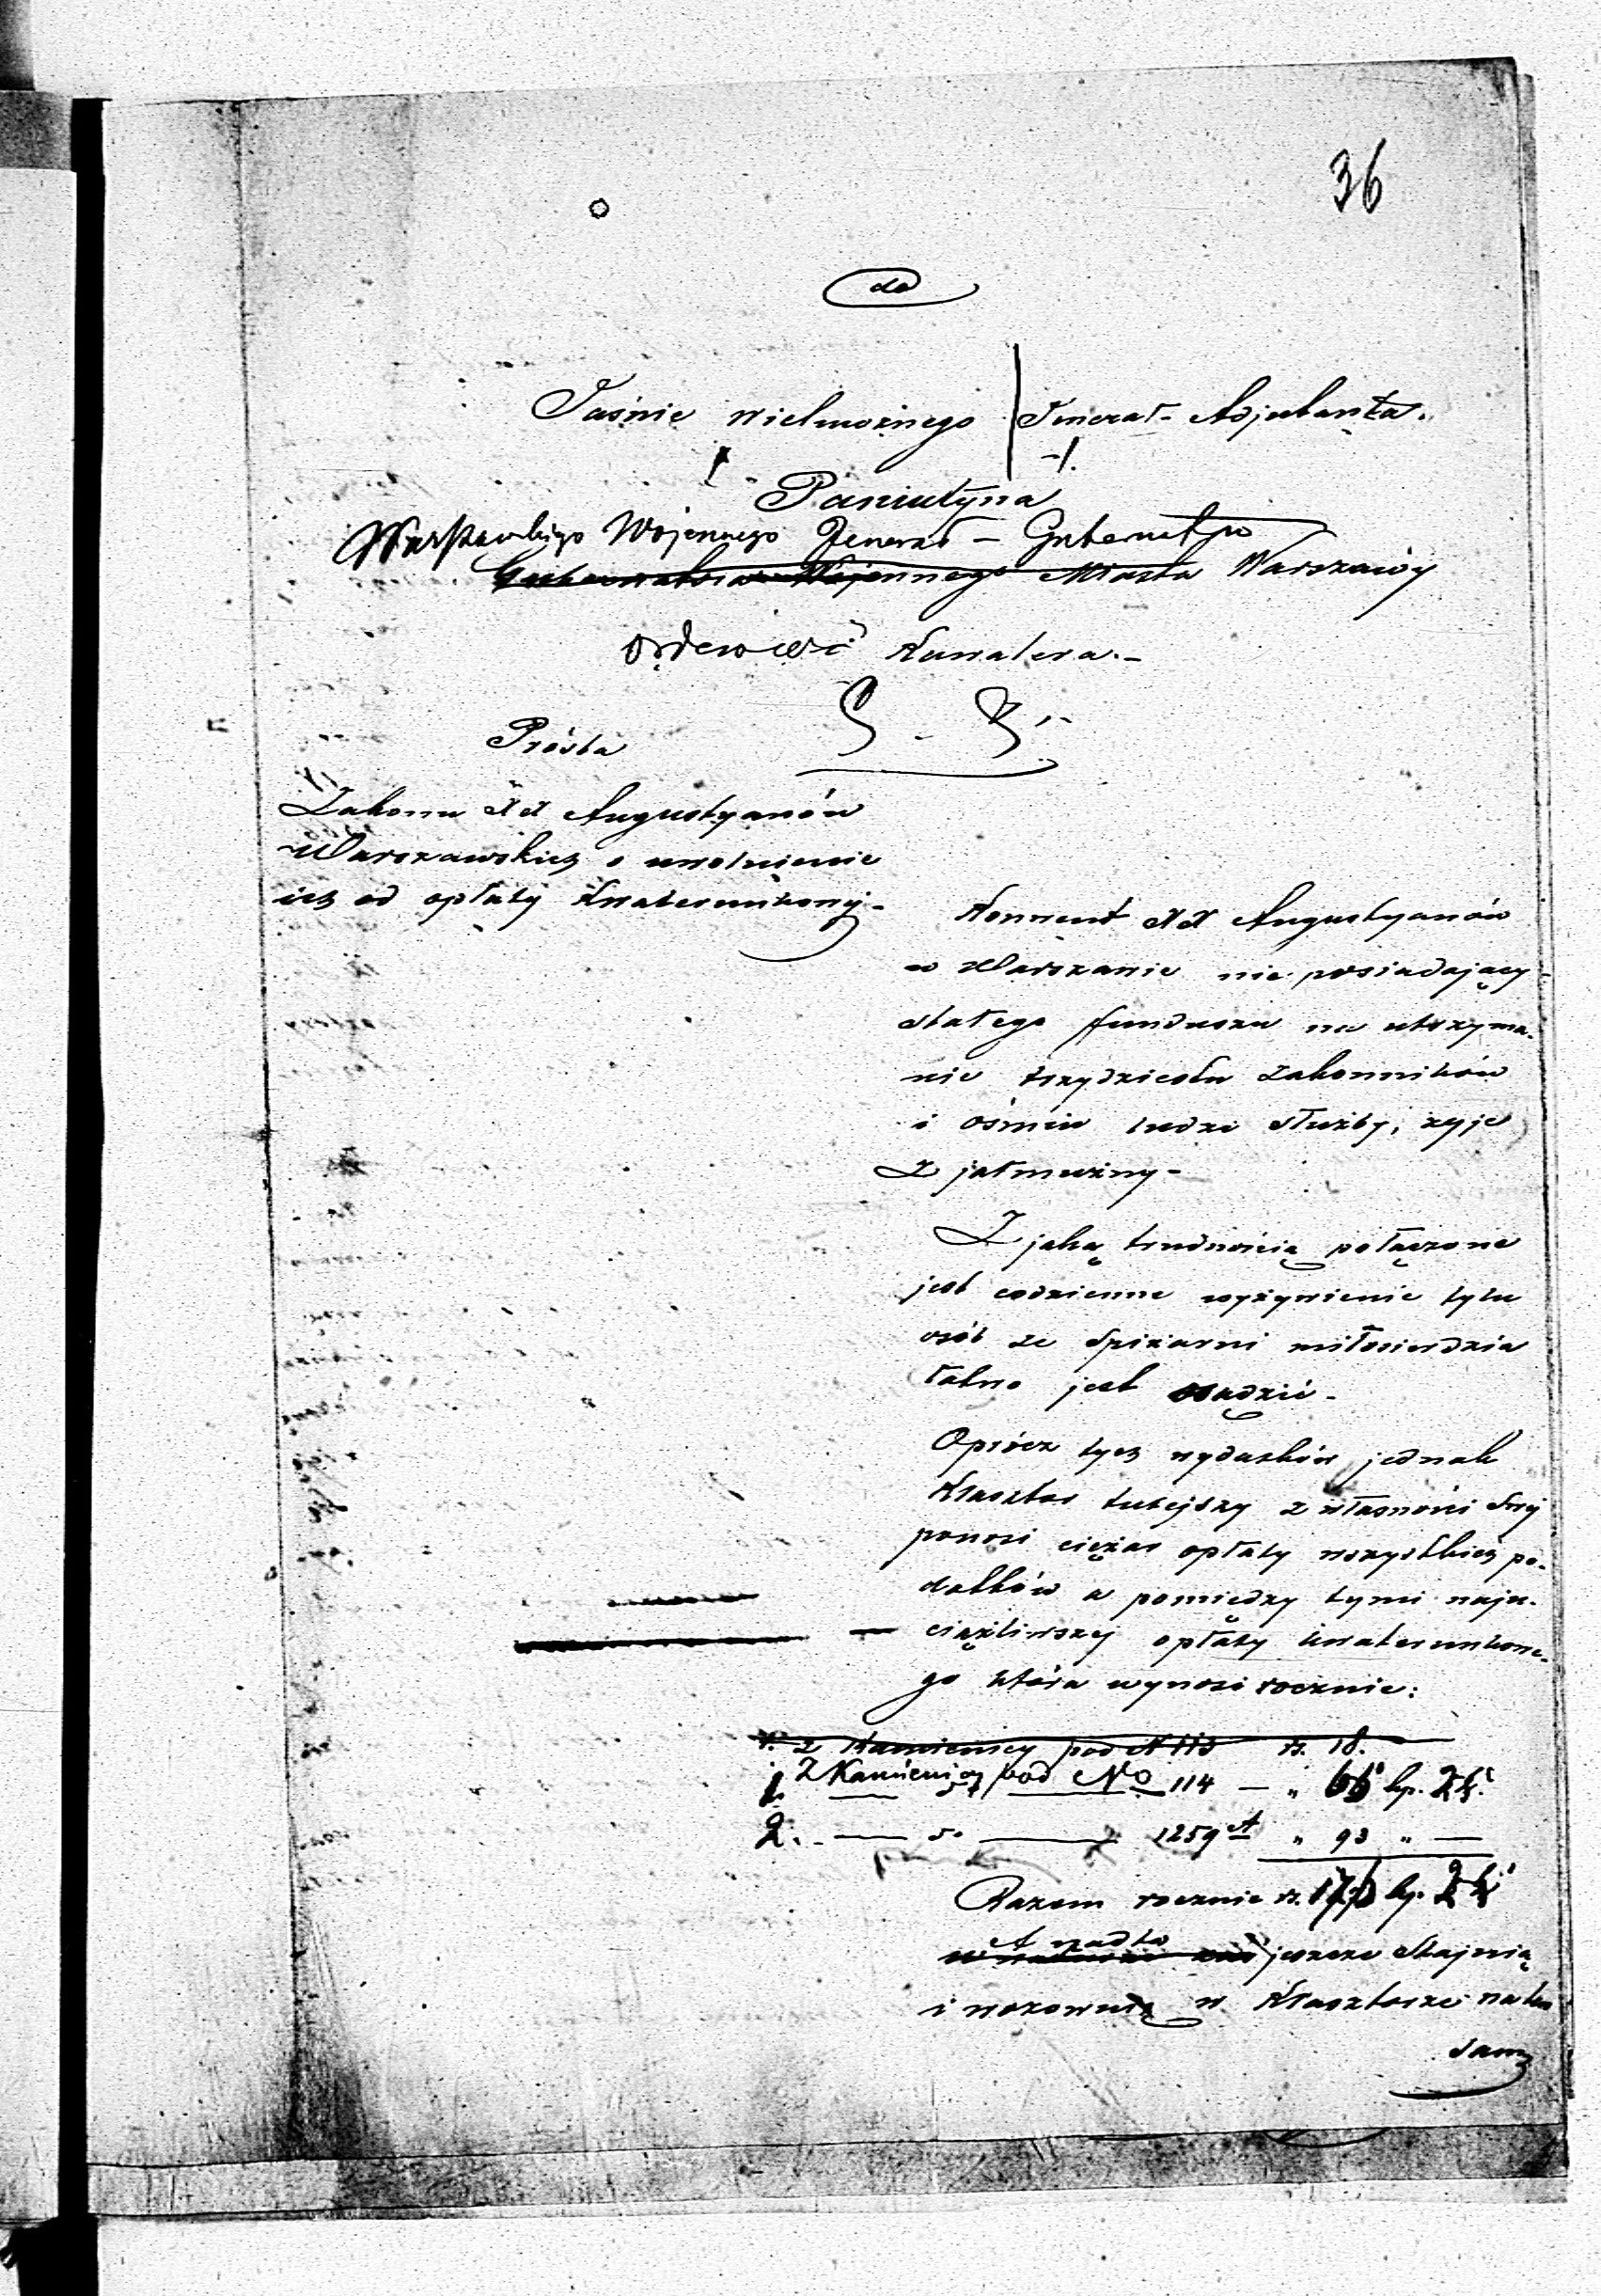 36
do
Jaśnie Wielmożnego Jenerał-Adjutanta.
Paniutyna
Warszawskiego Wojennego Jenerał - Gubernatora
Gubernatora Wojennego Miasta Warszawy
Orderów Kawalera.-
Prośba
Zakonu XX Augustyanów
Warszawskich o uwolnienie
ich od opłaty Kwaterunkowej-
Konwent XX Augustyanów
w Warszawie nie posiadający
stałego funduszu na utrzyma-
nie trzydziestu zakonników
i ośmiu ludzi służby, żyje
z jałmużny-
Z jaką trudnością połączone
jest codzienne wyżywienie tylu
osób ze spiżarni miłosierdzia
łatwo jest osądzić-
Oprócz tych wydatków jednak
Klasztor tutejszy z własności swej
ponosi ciężar opłaty wszystkich po-
datków a pomiędzy tymi naju-
ciążliwszej opłaty kwaterunkowe-
go która wynosi rocznie:
1. z Kamienicy pod N 113 rs. 18.
1. Z Kamienicy pod No 114 — „ kp.
2. — do — 1259 A „ 93 „ —
Razem rocznie rs. kp.
A nadto
jeszcze Stajnią
i wozownią w Klasztorze na ten
sam